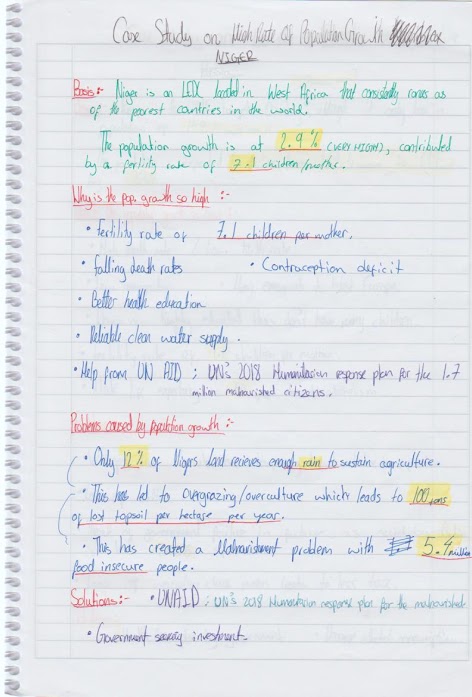 Case Study on High Rate of Population Growth
NIGER
Basis:- Niger is an LEDC located in West Africa that consistently ranks as
of the poorest countries in the world.
The population growth is at 2.9% (VERY HIGH), contributed
by a fertility rate of 7.1 children/mother.
Why is the pop. growth so high :-
• Fertility rate of 7.1 children per mother.
• falling death rates • Contraception deficit
• Better health education
• Reliable clean water supply.
• Help from UN AID ; UN's 2018 Humanitarian response plan for the 1.7
million malnourished citizens.
Problems caused by population growth :-
• Only 12% of Nigers land recieves enough rain to sustain agriculture.
• This has led to overgrazing/overculture which leads to 100 tons
of lost topsoil per hectase per year.
• This has created a Malnourishment problem with 5.4 million
food insecure people.
Solutions:- • UNAID ; UN's 2018 Humanitarian response plan for the malnourished
• Government seeking investment.